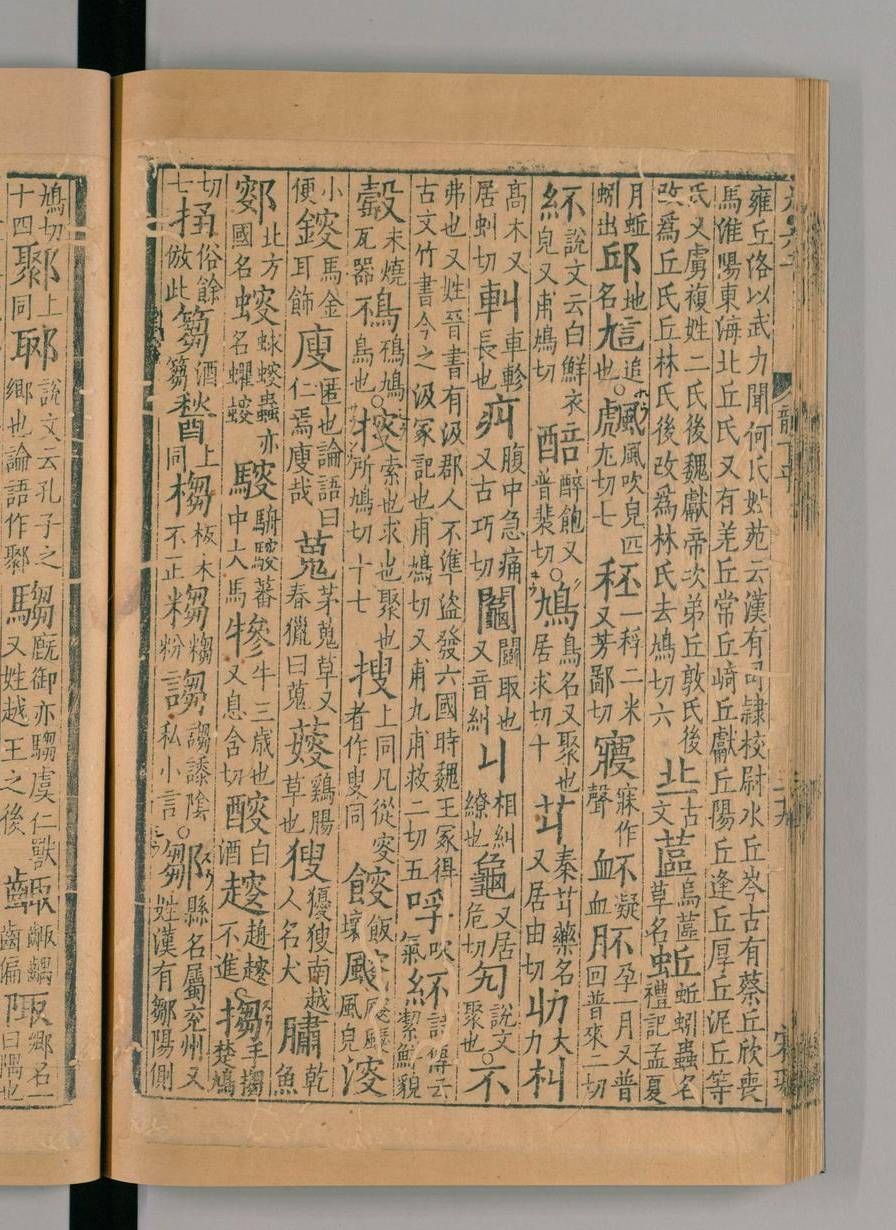 雍丘洛以武力聞何氏姓苑云漢有司隸校尉水丘岑古有蔡丘欣喪
馬淮陽東海北丘氏又有羌丘常丘崎丘獻丘陽丘逢丘厚丘泥丘等
氏又虜複姓二氏後魏獻帝次弟丘敦氏後改爲丘氏丘林氏後改爲林氏去鳩切六丠古文蓲烏蓲草名蚯蚯蚓蟲名禮記孟夏
月蚯蚓出邱地名訄追也○飍風吹皃匹尤切七秠一稃二米又芳鄙切寐作聲衃不凝血肧不孕一月又普回普來二切
紑說文云白鮮衣皃又甫鳩切醅醉飽又普裴切○鳩鳥名又聚也居求切十艽秦艽藥名又居由切大力朻
高木又居虯切車軫長也疛腹中急痛又古巧切鬮鬮取也又音糾丩相糾繚也龜又居危切勼說文聚也○不
弗也又姓晉書有汲郡人不準盜發六國時魏王冢得古文竹書今之汲冢記也甫鳩切又甫九甫救二切五吹氣紑詩傳云絜鮮貌
未燒瓦器鴀鴀鳩鳥也○搜索也求也聚也所鳩切十七搜上同凡從叜者作叟同餿飯壞颼颼颼風皃溲
小便鎪馬金耳飾廋匿也論語曰人焉廋哉蒐茅蒐草又春獵曰蒐蓃雞腸草也獀獶獀南越人名犬䐹乾魚
鄋北方國名螋蛷螋蟲亦名蠷螋騪騈騪蕃中大馬犙牛三歲也又息含切醙白酒不進○搊手搊楚鳩
切七俗餘倣此篘酒篘上同板木不正粉謅陰私小言○鄒縣名屬兗州又姓漢有鄒陽側
鳩切十四鄹上同郰說文云孔子之鄉也論語作鄹騶廄御亦騶虞仁獸又姓越王之後齱齱齵齒偏陬鄉名一曰隅也